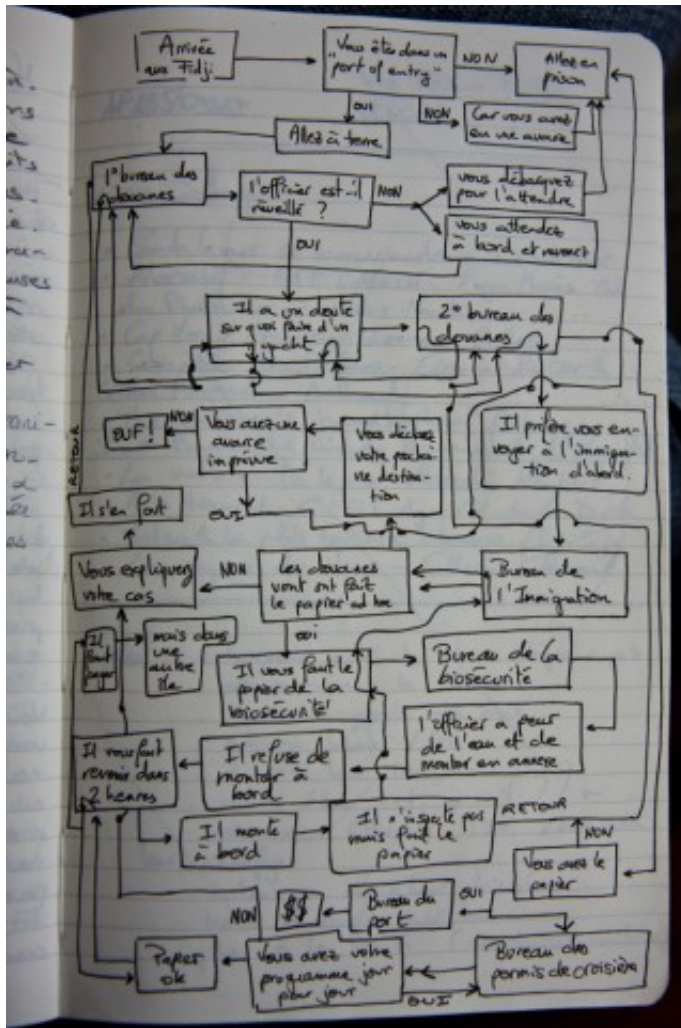 Arrivée
aux Fidji
"Vous êtes dans un
port of entry"
NON
Allez en
prison
OUI
NON
Car vous avez
eu une avarie
Allez à terre
1º bureau des
douanes
l'officier est-il
réveillé ?
NON
vous débarquez
pour l'attendre
vous attendez
à bord et revenez
OUI
Il a un doute
sur quoi faire d'un
yacht
2º bureau des
douanes
OUF !
NON
Vous avez une
avarie
imprévue
Vous déclarez
votre prochai-
ne destina-
tion
Il préfère vous en-
voyer à l'immigra-
tion d'abord.
RETOUR
OUI
Il s'en fout
Vous expliquez
votre cas
NON
Les douanes
vont ont fait
le papier ad hoc
Bureau de
l'Immigration
OUI
Il
faut
payer
mais dans
une
autre
île
Il vous faut le
papier de la
biosécurité
Bureau de la
biosécurité
l'officier a peur
de l'eau et de
monter en annexe
Il refuse de
monter à
bord
Il vous faut
revenir dans
2 heures
Il monte
à bord
Il n'inspecte pas
mais fait le
papier
RETOUR
NON
Vous avez le
papier
OUI
Bureau du
port
$$
NON
Papier
ok
Vous avez votre
programme jour
pour jour
OUI
Bureau des
permis de croisière